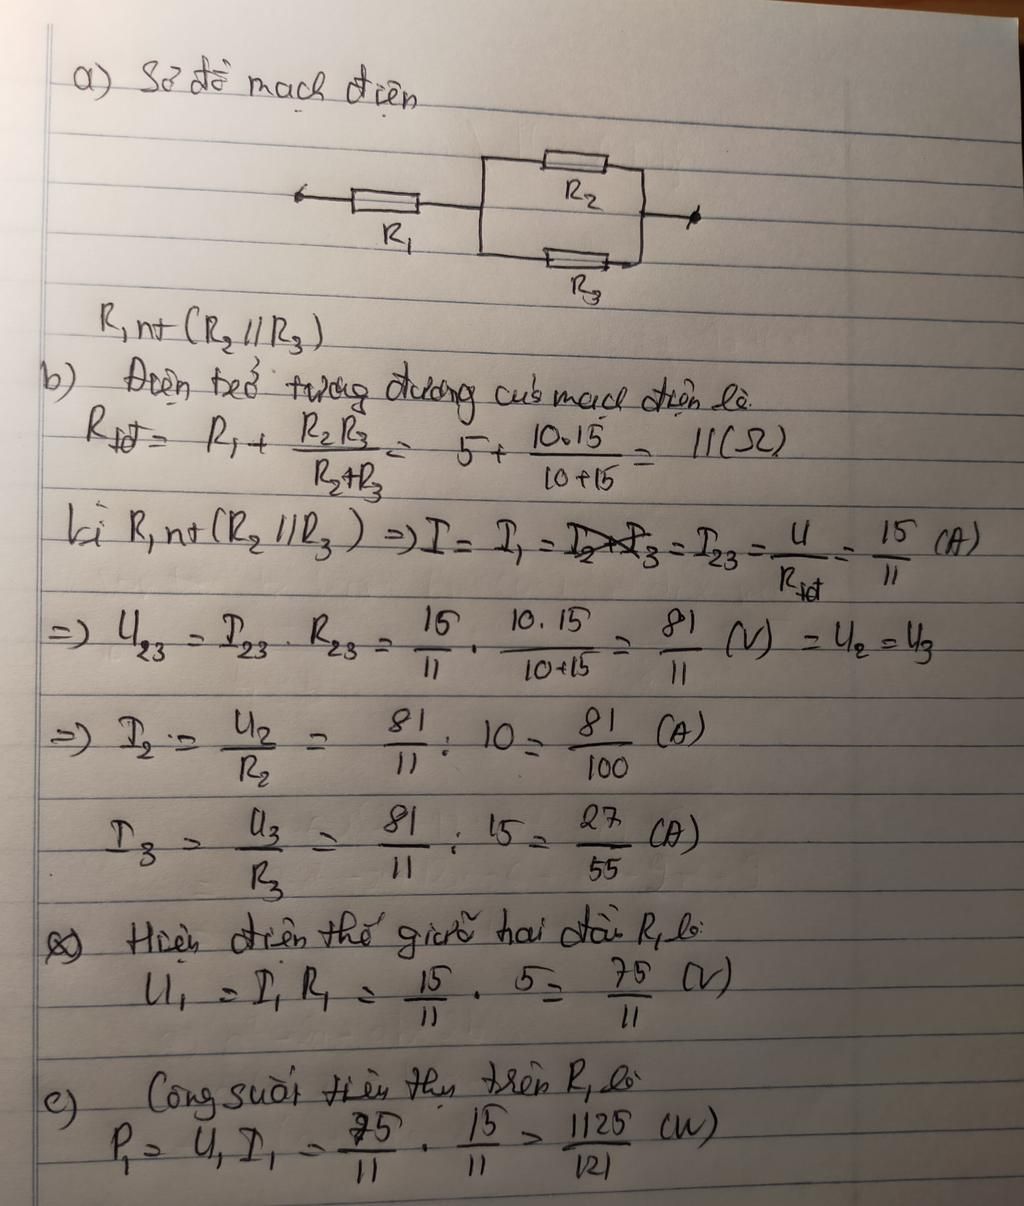 a) Sơ đồ mạch điện
R₁
R₂
R₃
R₁ nt (R₂ // R₃)
b) Điện trở tương đương của mạch điện là
Rtđ = R₁ + R₂R₃/(R₂+R₃) = 5 + 10.15/(10+15) = 11 (Ω)
Vì R₁ nt (R₂ // R₃) => I = I₁ = I₂₃ = U/Rtđ = 15/11 (A)
=> U₂₃ = I₂₃ . R₂₃ = 15/11 . 10.15/(10+15) = 81/11 (V) = U₂ = U₃
=> I₂ = U₂/R₂ = 81/11 : 10 = 81/100 (A)
I₃ = U₃/R₃ = 81/11 : 15 = 27/55 (A)
Hiệu điện thế giữa hai đầu R₁ là:
U₁ = I₁ R₁ = 15/11 . 5 = 75/11 (V)
c) Công suất tiêu thụ trên R₁ là
P₁ = U₁ I₁ = 75/11 . 15/11 = 1125/121 (W)